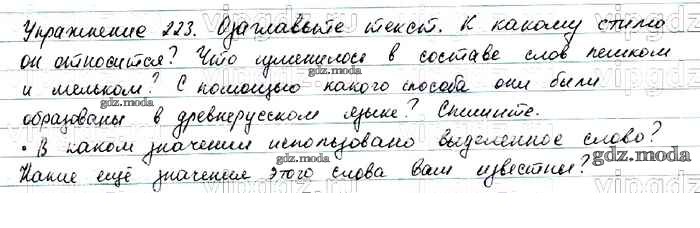 Упражнение 223. Озаглавьте текст. К какому стилю
он относится? Что изменилось в составе слов пешком
и мельком? С помощью какого способа они были
образованы в древнерусском языке? Спишите.
• В каком значении использовано выделенное слово?
Какие ещё значения этого слова вам известны?
gdz.moda
gdz.moda
gdz.moda
gdz.moda
gdz.moda